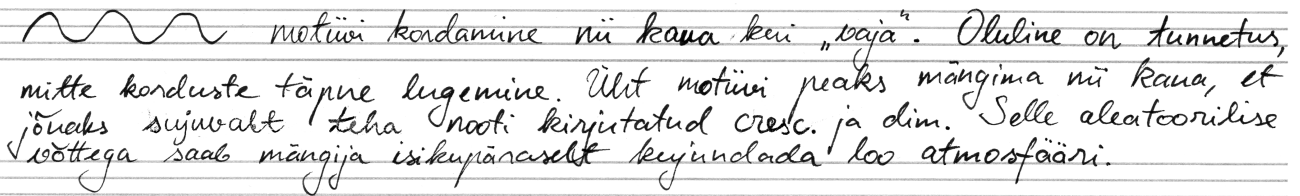 motiivi kordamine nii kaua kui „vaja“. Oluline on tunnetus,
mitte korduste täpne lugemine. Üht motiivi peaks mängima nii kaua, et
jõuaks sujuvalt teha nooti kirjutatud cresc. ja dim. Selle aleatoorilise
võttega saab mängija isikupäraselt kujundada loo atmosfääri.